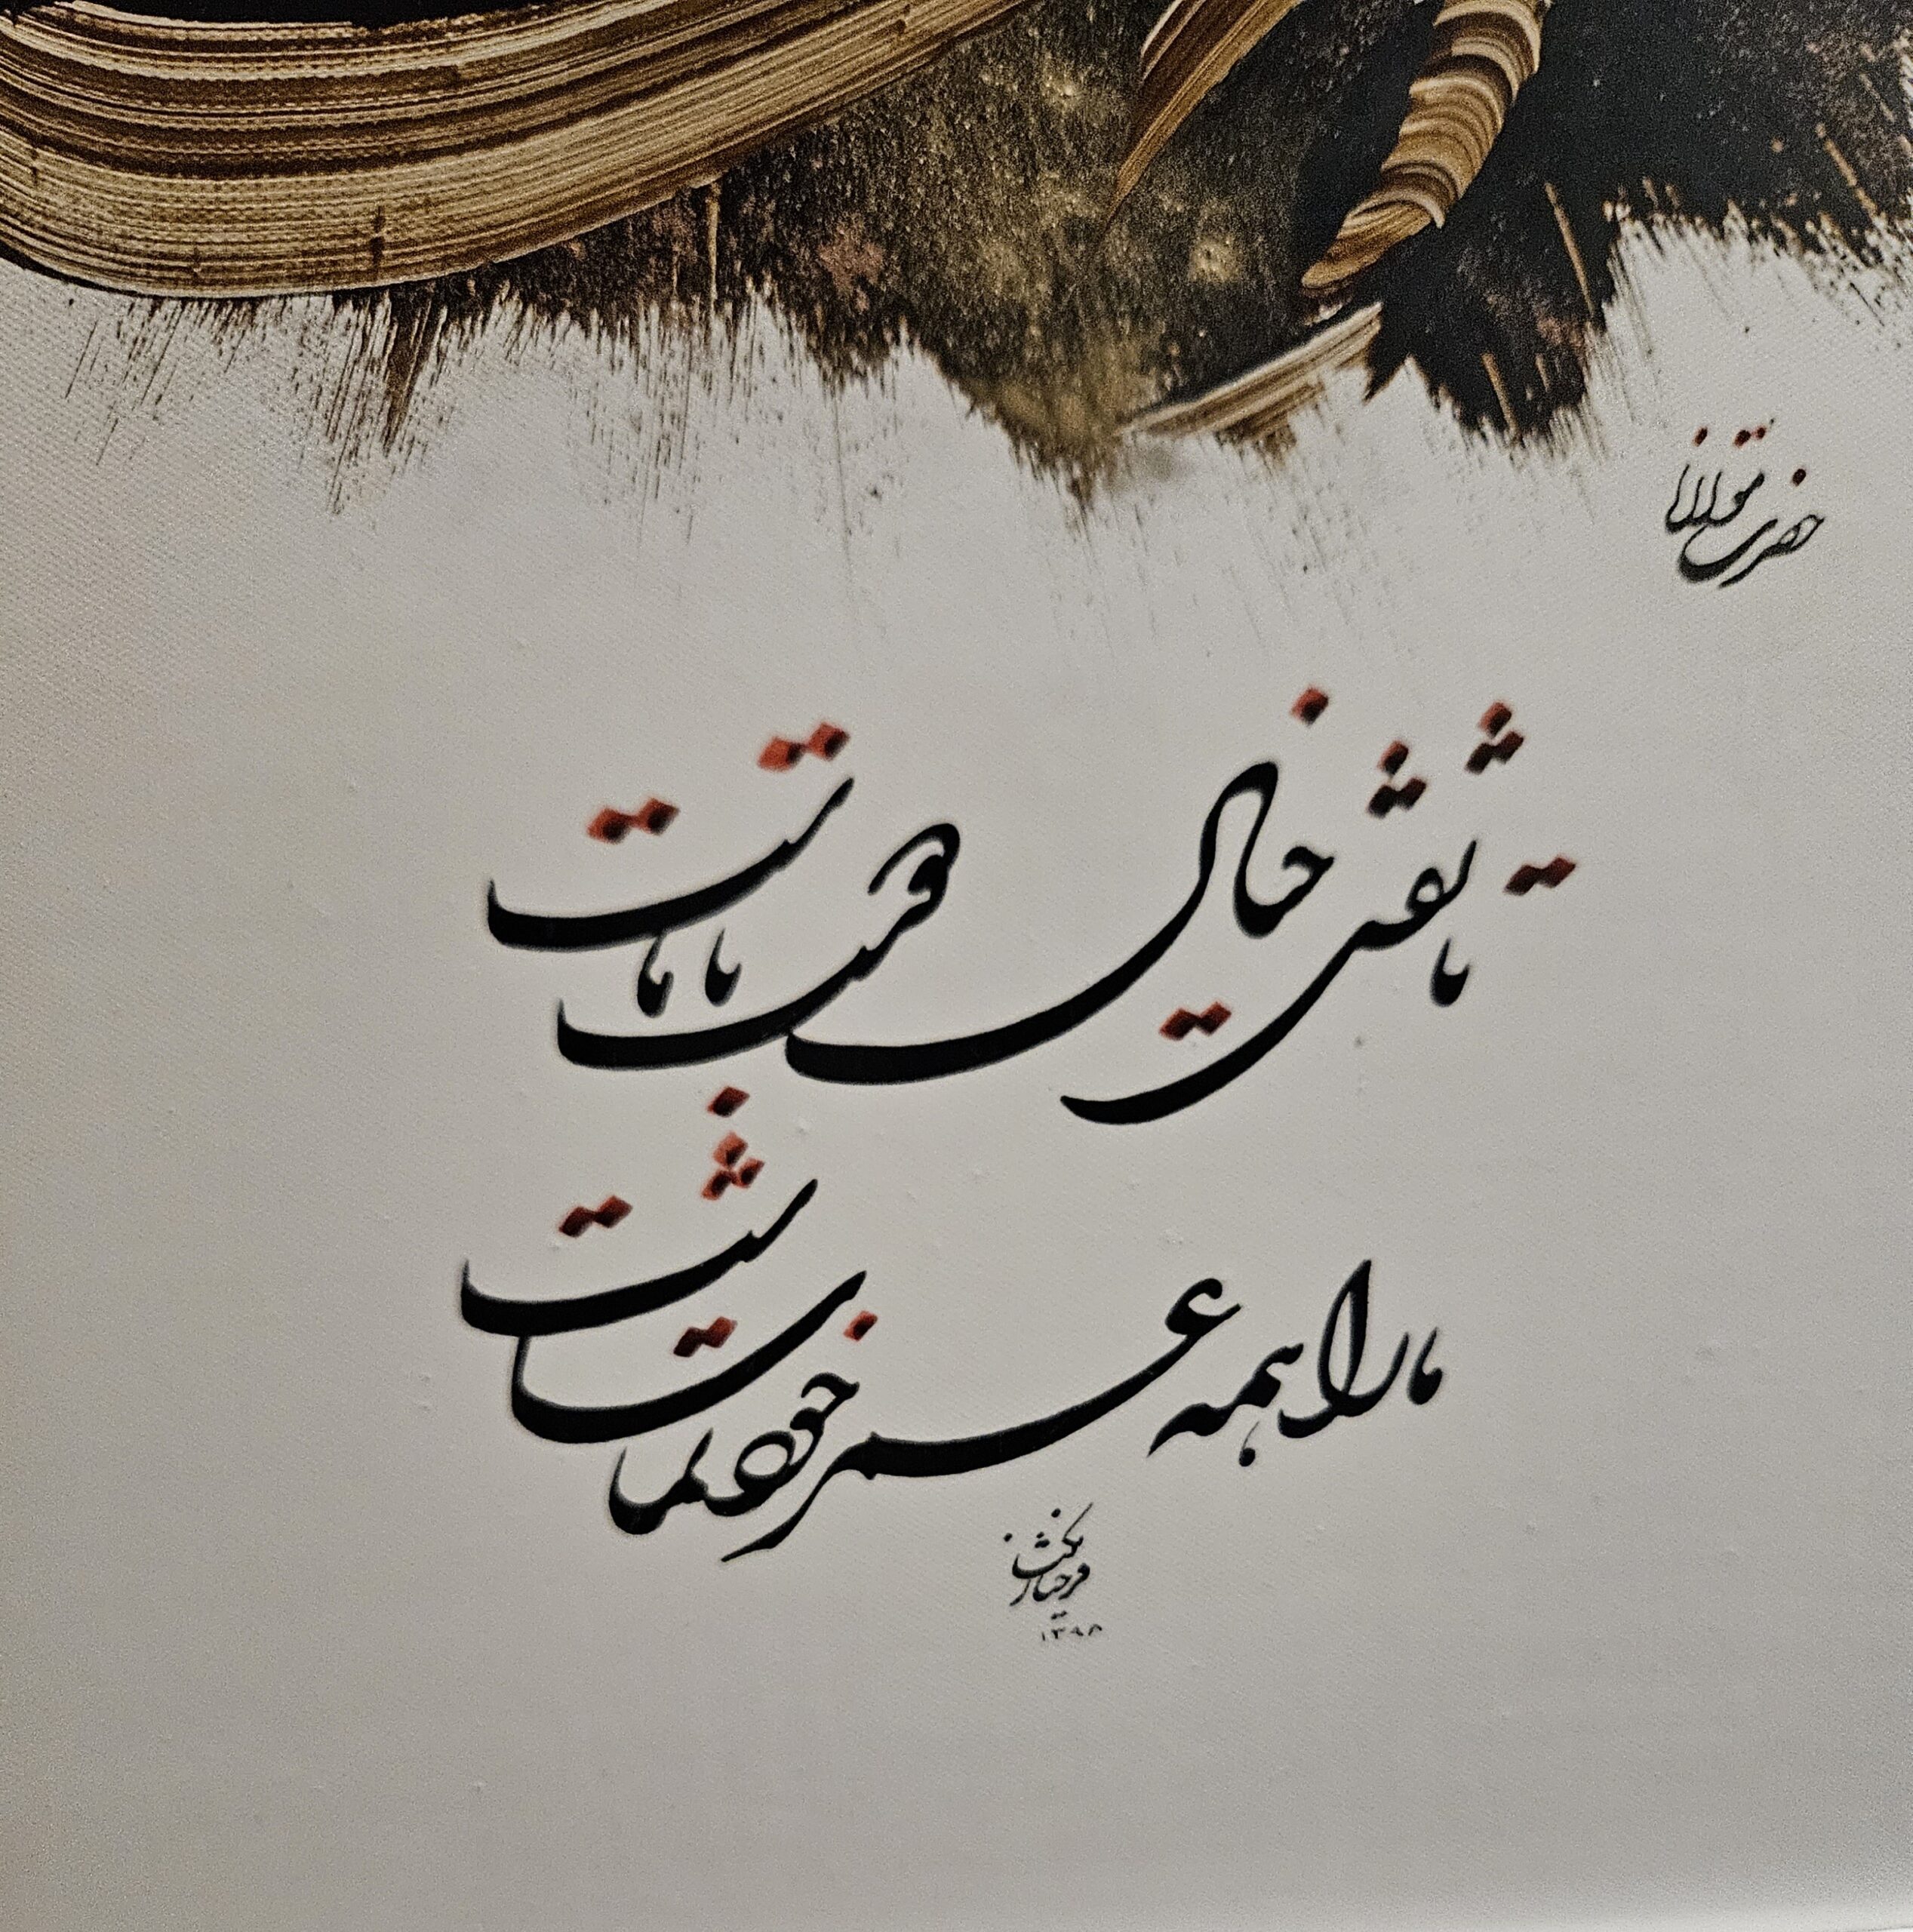 حضرت مولانا
تا نقش خیال دوست با ماست
ما را همه عمر خود تماشاست
۱۳۹۸